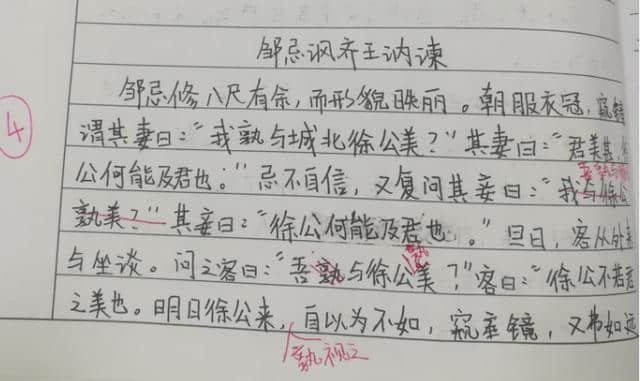 邹忌讽齐王讷谏
邹忌修八尺有余，而形貌昳丽。朝服衣冠，窥镜
4
谓其妻曰：“我孰与城北徐公美？”其妻曰：“君美甚
公何能及君也。”忌不自信，又复问其妾曰：“我与徐公
孰美？”其妾曰：“徐公何能及君也。”旦日，客从外来
与坐谈。问之客曰：“吾孰与徐公美？”客曰：“徐公不若君
孰
之美也。明日徐公来，自以为不如，窥镜，又弗如远
孰视之